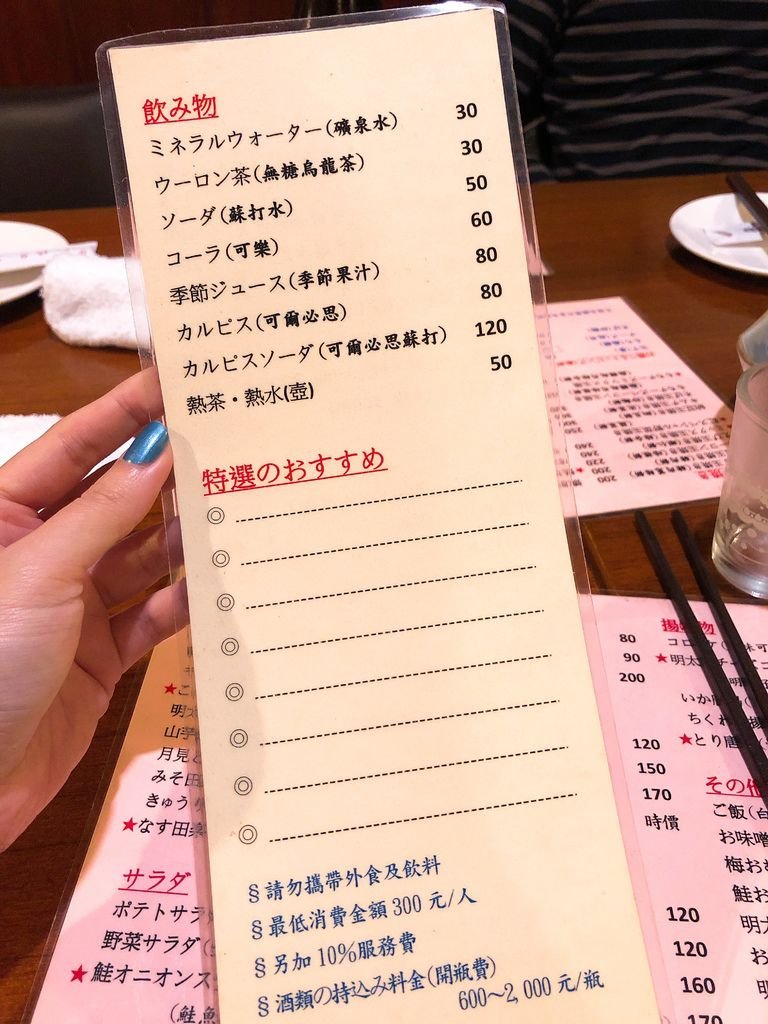 飲み物
ミネラルウォーター(礦泉水) 30
ウーロン茶(無糖烏龍茶) 30
ソーダ(蘇打水) 50
コーラ(可樂) 60
季節ジュース(季節果汁) 80
カルピス(可爾必思) 80
カルピスソーダ(可爾必思蘇打) 120
熱茶・熱水(壺) 50
特選のおすすめ
◎
◎
◎
◎
◎
◎
◎
◎
§請勿攜帶外食及飲料
§最低消費金額300元/人
§另加10%服務費
§酒類の持込み料金(開瓶費)
600~2,000元/瓶
★こ
明太
山芋
月見
みそ田
きゅうり
★なす田楽
サラダ
ポテトサラ
野菜サラダ
★鮭オニオンス
(鮭魚
80
90
200
120
150
170
時價
120
120
160
170
揚げ物
コロッケ
★明太
いか
ちくわ
★とり唐
その他
ご飯(白
お味噌
梅お
鮭お
明太
お
明